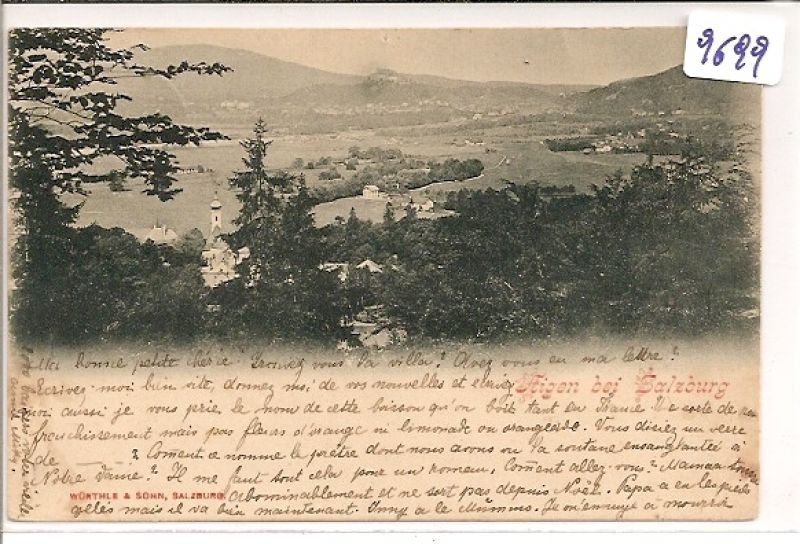 9699
Ma bonne petite chérie ! Trouvez vous la villa ? Avez vous eu ma lettre ?
Ecrivez-moi bien vite, donnez moi de vos nouvelles et
Aigen bei Salzburg
moi aussi je vous prie, le nom de cette boisson qu'on boit tant en France
fraichissement mais pas fleurs d'orange ni limonade ou orangeade. Vous disiez un verre
de ? Comment se nomme le prêtre dont nous avons vu la soutane ensanglantée à
Notre Dame ? Il me faut tout cela pour un roman. Comment allez-vous ? Maman
WÜRTHLE & SOHN, SALZBURG
abominablement et ne sort pas depuis Noël. Papa a eu les pieds
gelés mais il va bien maintenant. a le Mumms. Je m'ennuye à mourir